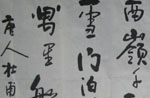 西嶺千
雪門泊
萬里船
唐人杜甫